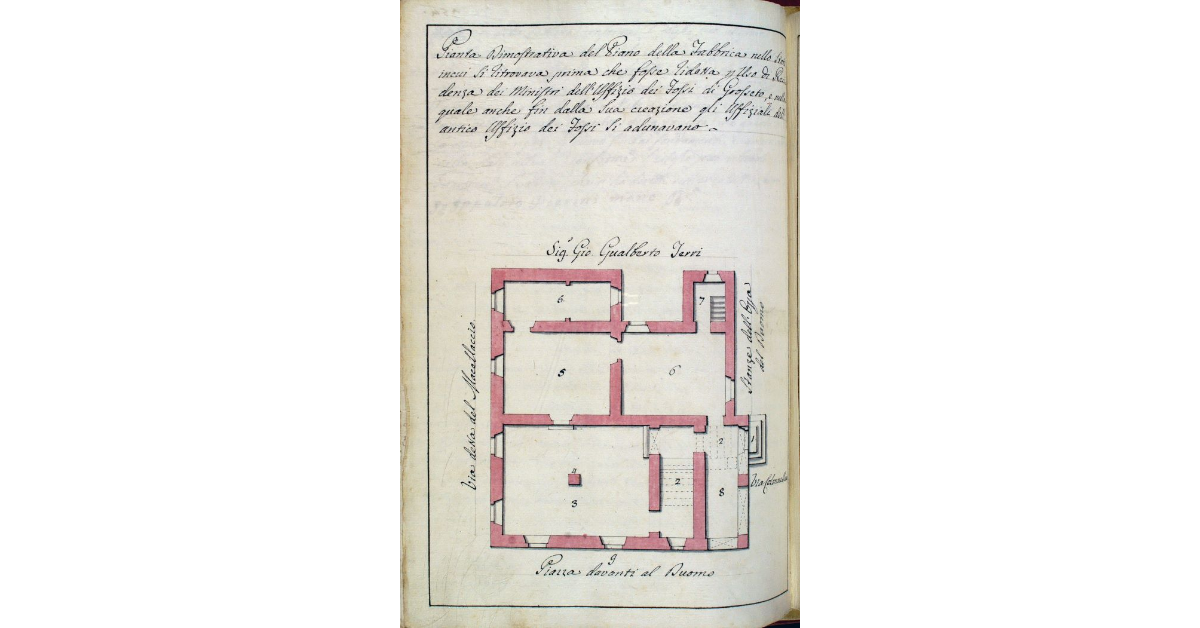 Pianta Dimostrativa del Piano della Fabbrica nello
incui si ritrovava prima che fosse ridotta p Uso di
denza dei Ministri dell'Uffizio dei Fossi di Grosseto, e nella
quale anche fin dalla sua creazione gli Uffiziali dell
antico Uffizio dei Fossi si adunavano
Sig.r Gio. Gualberto Ferri
6
7
Via detta del
Stanze dell'
del Duomo
5
6
2
1
4
2
3
8
9
Piazza davanti al Duomo